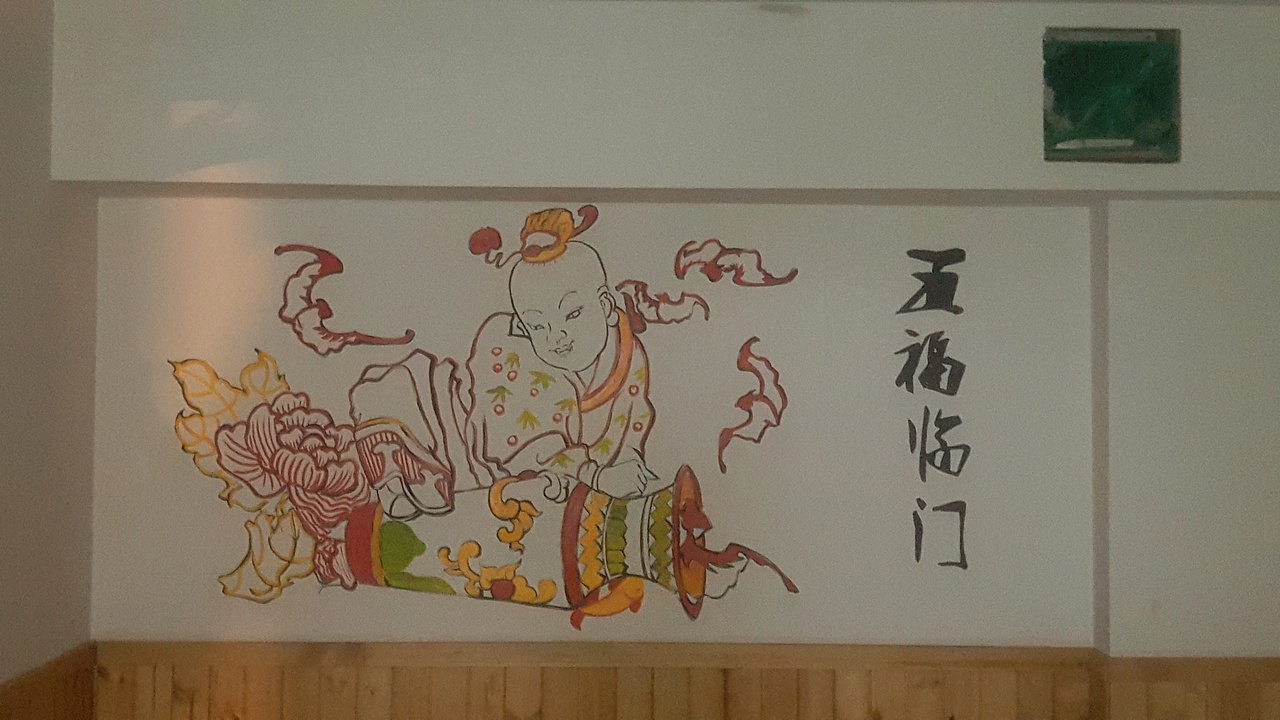 五福临门